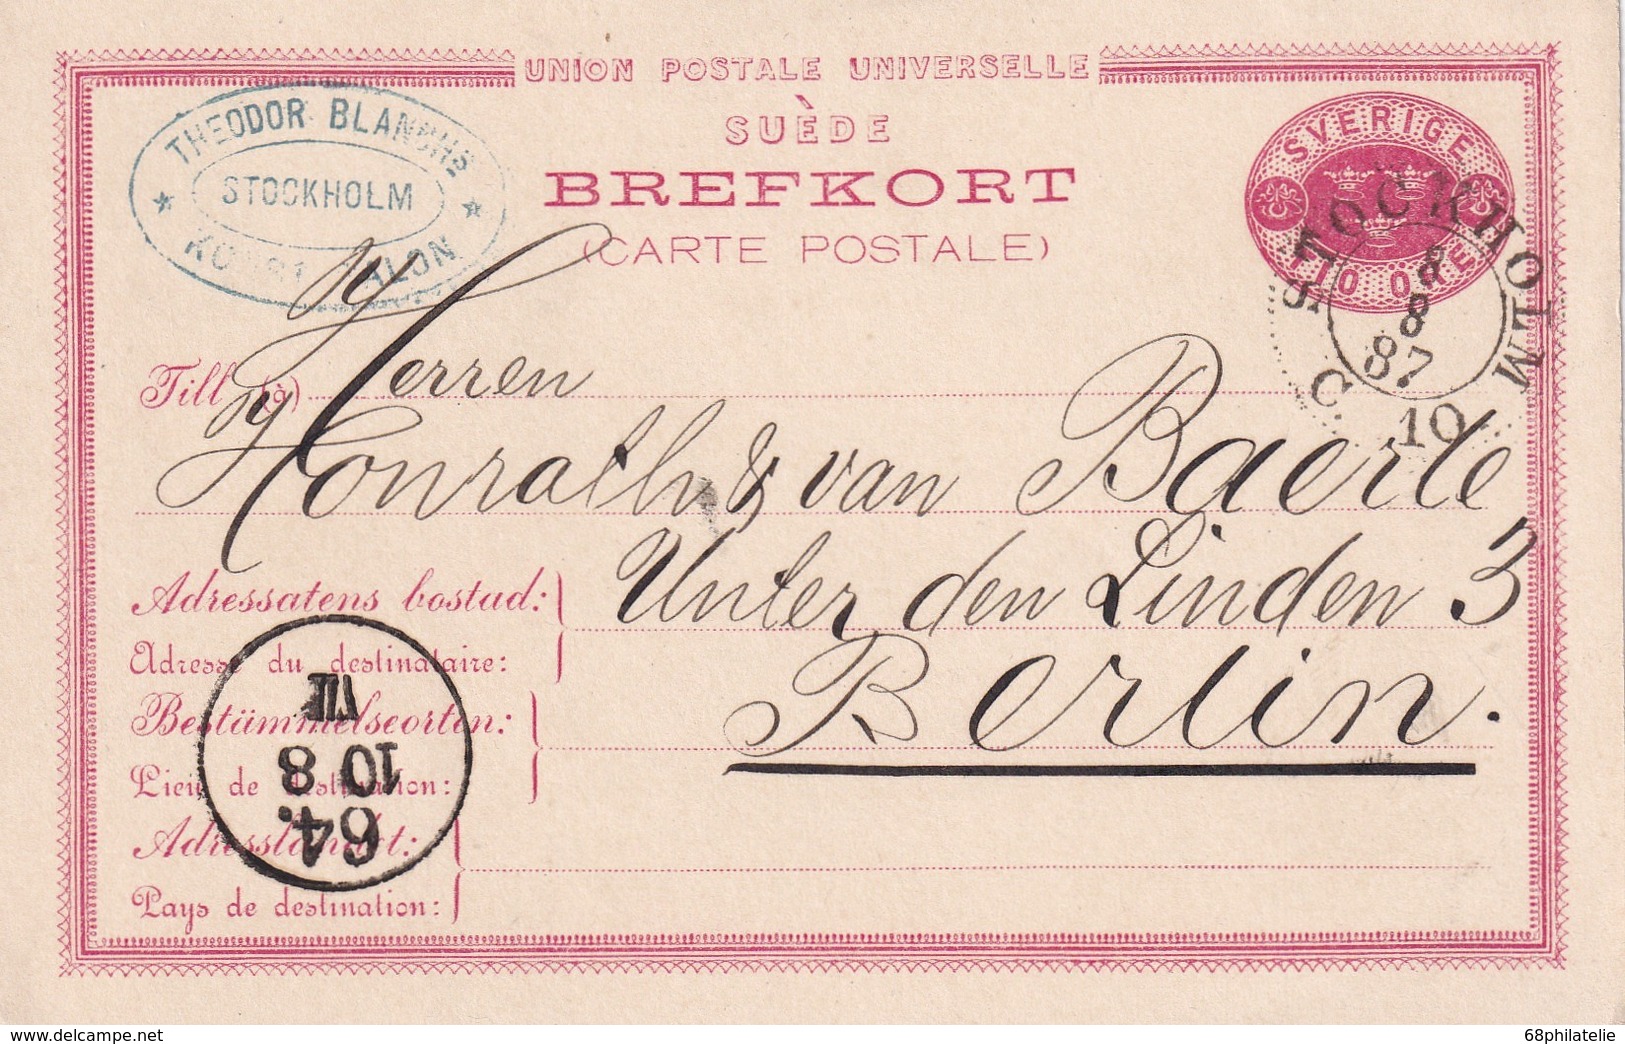 UNION POSTALE UNIVERSELLE
SUÈDE
BREFKORT
(CARTE POSTALE)
THEODOR BLANCHS
STOCKHOLM
KONST SALON
SVERIGE
TIO ÖRE
STOCKHOLM
8
8
87
C. 10
Till (à)
Herren
Honrath & van Baerle
Unter den Linden 3
Berlin.
Adressatens bostad:
Adresse du destinataire:
Bestämmelseorten:
Lieu de destination:
Adresslandet:
Pays de destination:
64.
10 8
VII
delcampe.net
68philatelie